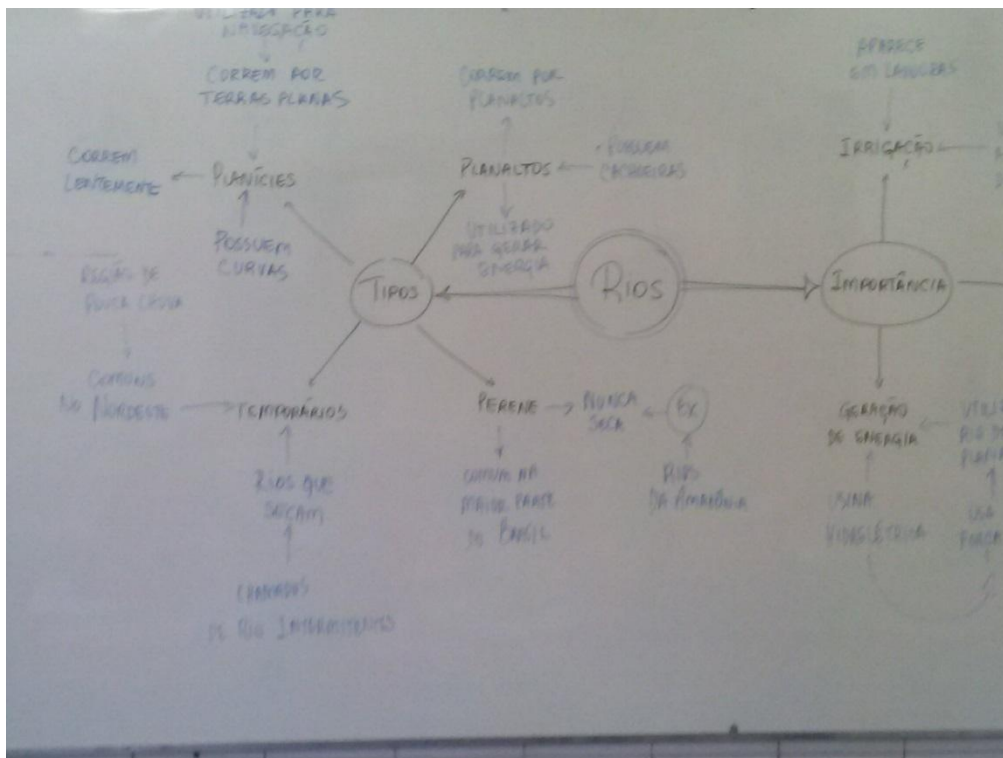 UTILIZADO PARA
NAVEGAÇÃO
CORREM POR
TERRAS PLANAS
CORREM
LENTEMENTE
PLANÍCIES
POSSUEM
CURVAS
CORREM POR
PLANALTOS
PLANALTOS
POSSUEM
CACHOEIRAS
UTILIZADO
PARA GERAR
ENERGIA
TIPOS
RIOS
IMPORTÂNCIA
APARECE
EM LAVOURAS
IRRIGAÇÃO
REGIÃO DE
POUCA CHUVA
COMUNS
NO NORDESTE
TEMPORÁRIOS
RIOS QUE
SECAM
CHAMADOS
DE RIO INTERMITENTES
PERENE
NUNCA
SECA
EX
RIOS
DA AMAZÔNIA
COMUM NA
MAIOR PARTE
DO BRASIL
GERAÇÃO
DE ENERGIA
USINA
USA
FORÇA